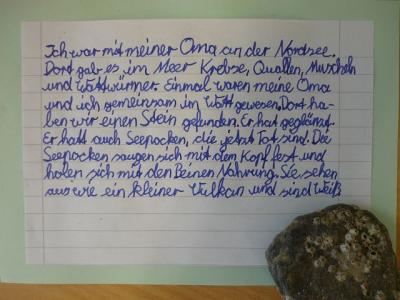 Ich war mit meiner Oma an der Nordsee.
Dort gab es im Meer Krebse, Quallen, Muscheln
und Wattwürmer. Einmal waren meine Oma
und ich gemeinsam im Watt gewesen. Dort ha-
ben wir einen Stein gefunden. Er hat geglänzt.
Er hatt auch Seepocken, die jetzt Tot sind. Die
Seepocken saugen sich mit dem Kopf fest und
holen sich mit den Beinen Nahrung. Sie sehen
aus wie ein kleiner Vulkan und sind Weiß